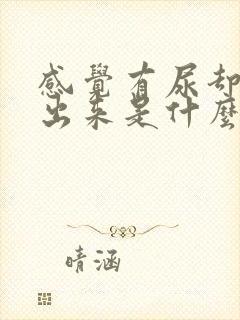 感覺有尿卻
出來是什麼
晴涵